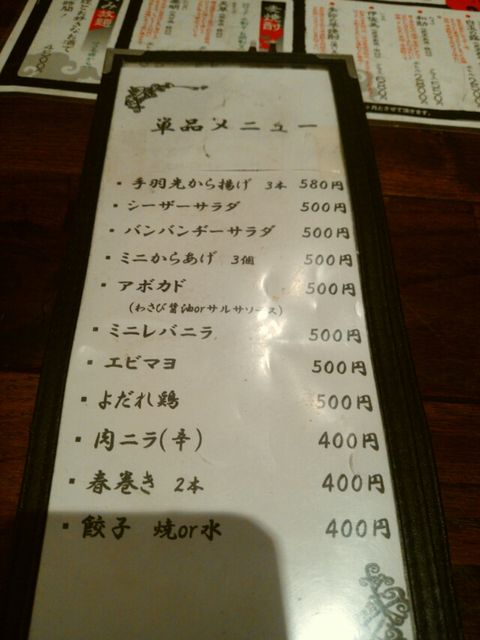 単品メニュー
・手羽先から揚げ 3本 580円
・シーザーサラダ 500円
・バンバンヂーサラダ 500円
・ミニからあげ 3個 500円
・アボカド 500円
(わさび醤油orサルサソース)
・ミニレバニラ 500円
・エビマヨ 500円
・よだれ鶏 500円
・肉ニラ(辛) 400円
・春巻き 2本 400円
・餃子 焼or水 400円